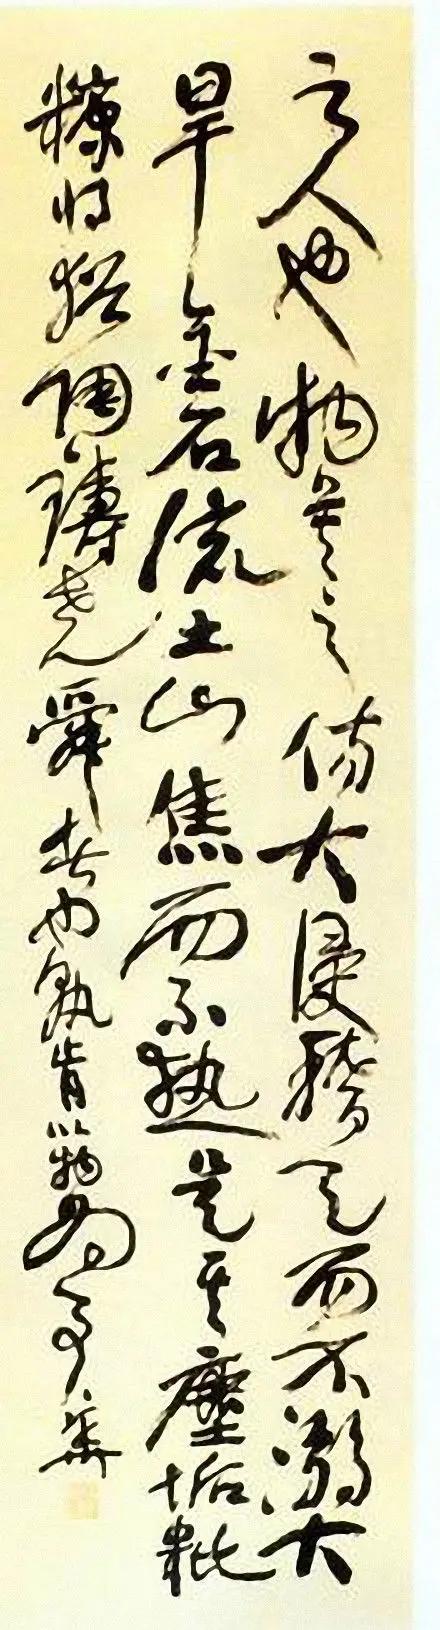 之人也物莫之傷大浸稽天而不溺大
旱金石流土山焦而不熱是其塵垢粃
糠将猶陶鑄堯舜者也孰肯以物為事